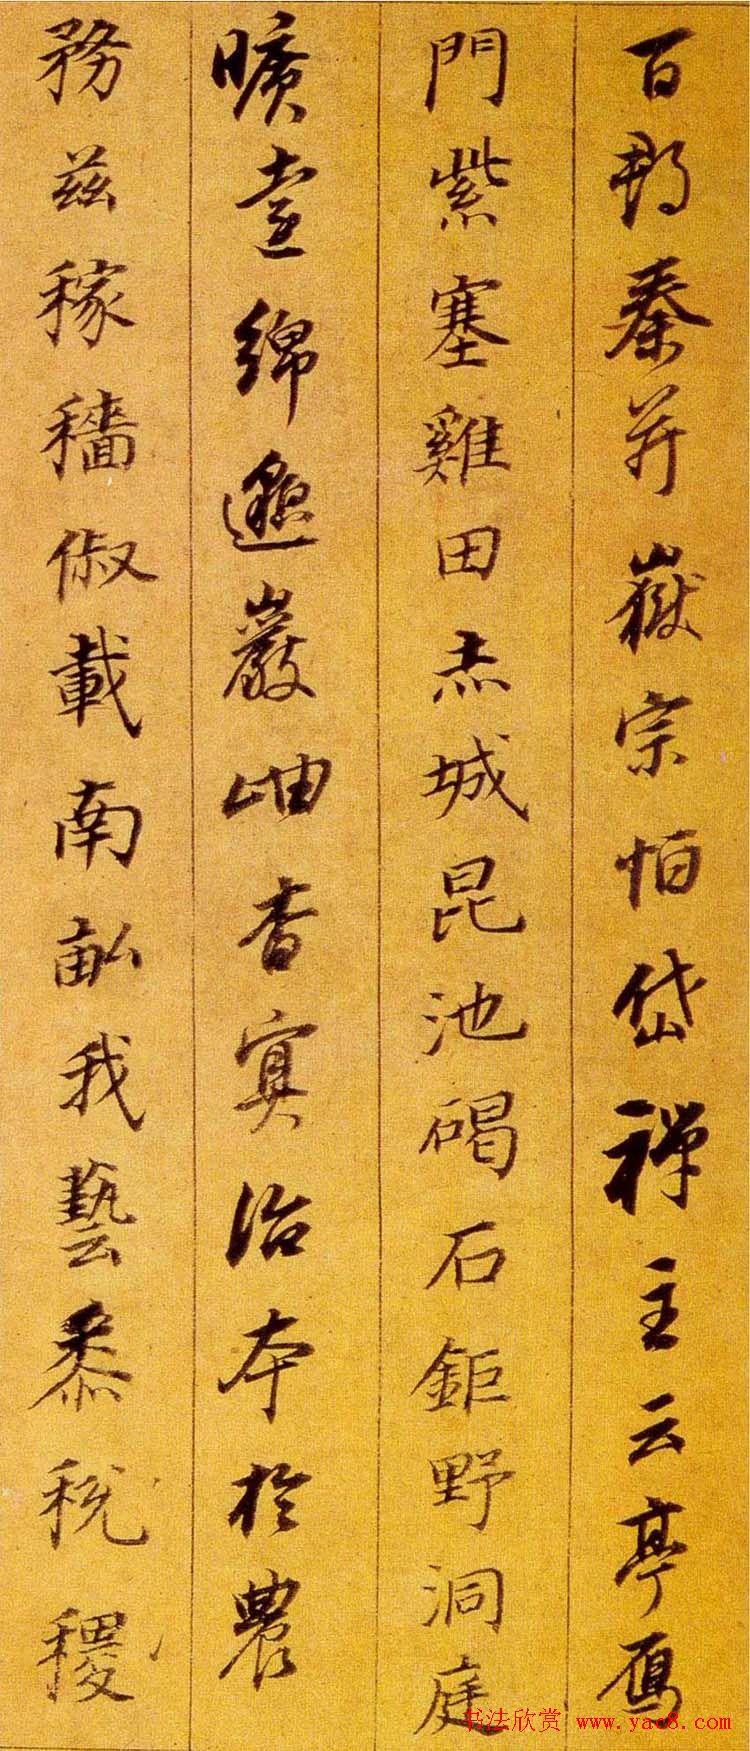 百郡秦并嶽宗恒岱禪主云亭鴈
門紫塞雞田赤城昆池碣石鉅野洞庭
曠遠綿邈巖岫杳冥治本於農
務茲稼穡俶載南畝我藝黍稅稷
书法欣赏 www.yac8.com